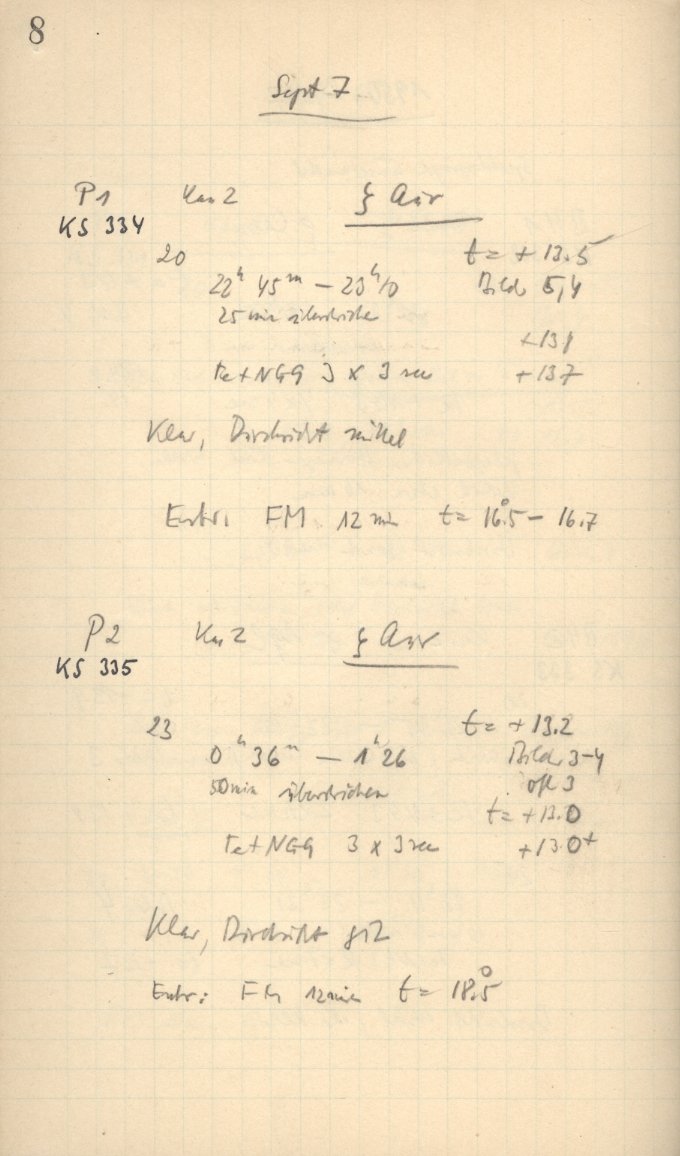 8
Sept 7
P1 Kas 2 ξ Aur
KS 334
20 t = + 13.5
22ʰ 45ᵐ — 23ʰ10 Bild 5,4
25 min überstrichen
+13
Fe + NGG 3 x 3 sec +13.7
Klar, Durchsicht mittel
Entw: FM 12 min t = 16°.5 – 16.7
P2 Kas 2 ξ Aur
KS 335
23 t = + 13.2
0ʰ 36ᵐ — 1ʰ 26 Bild 3-4
50 min überstrichen oft 3
t = +13.0
Fe + NGG 3 x 3 sec +13.0+
Klar, Durchsicht gut
Entw: FM 12 min t = 18°.5